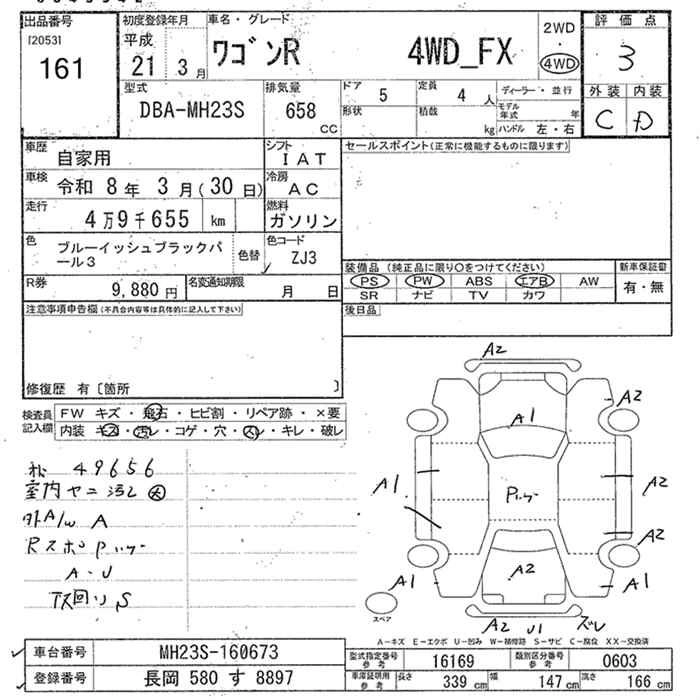 出品番号
[2053]
161
初度登録年月
平成
21 3月
車名・グレード
ワゴンR 4WD_FX
2WD
・
4WD
評価点
3
外装 内装
C D
型式
DBA-MH23S
排気量
658
cc
ドア 5
定員 4 人
形状
積載 kg
ディーラー・並行
モデル年式 年
ハンドル 左・右
車歴
自家用
シフト
IAT
車検
令和 8年 3月(30日)
冷房
AC
走行
4万9千655 km
燃料
ガソリン
色
ブルーイッシュブラックパ
ール3
色替
色コード
ZJ3
R券
9,880 円
名変通知期限
月 日
セールスポイント(正常に機能するものに限ります)
装備品 (純正品に限り○をつけてください)
PS PW ABS エアB AW
SR ナビ TV カワ
新車保証書
有・無
後日品
注意事項申告欄(不具合内容等は具体的に記入して下さい)
修復歴 有〔箇所 〕
検査員
記入欄
FW キズ・飛石・ヒビ割・リペア跡・×要
内装 キズ・汚レ・コゲ・穴・スレ・キレ・破レ
49656
室内ヤニ汚レ大
外A/W A
A-U
下回りS
A2
A2
A1
A1
A2
A2
A2
A1
A1
A2 U1 ズレ
スペア
A-キズ E-エクボ U-凹み W-補修跡 S-サビ C-腐食 XX-交換済
車台番号
MH23S-160673
登録番号
長岡 580 す 8897
型式指定番号
参考
16169
類別区分番号
参考
0603
車庫証明用
参考
長さ 339 cm
幅 147 cm
高さ 166 cm